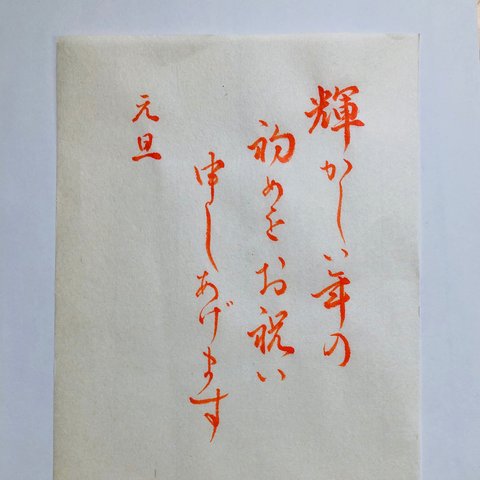 輝かしい年の
初めをお祝い
申しあげます
元旦